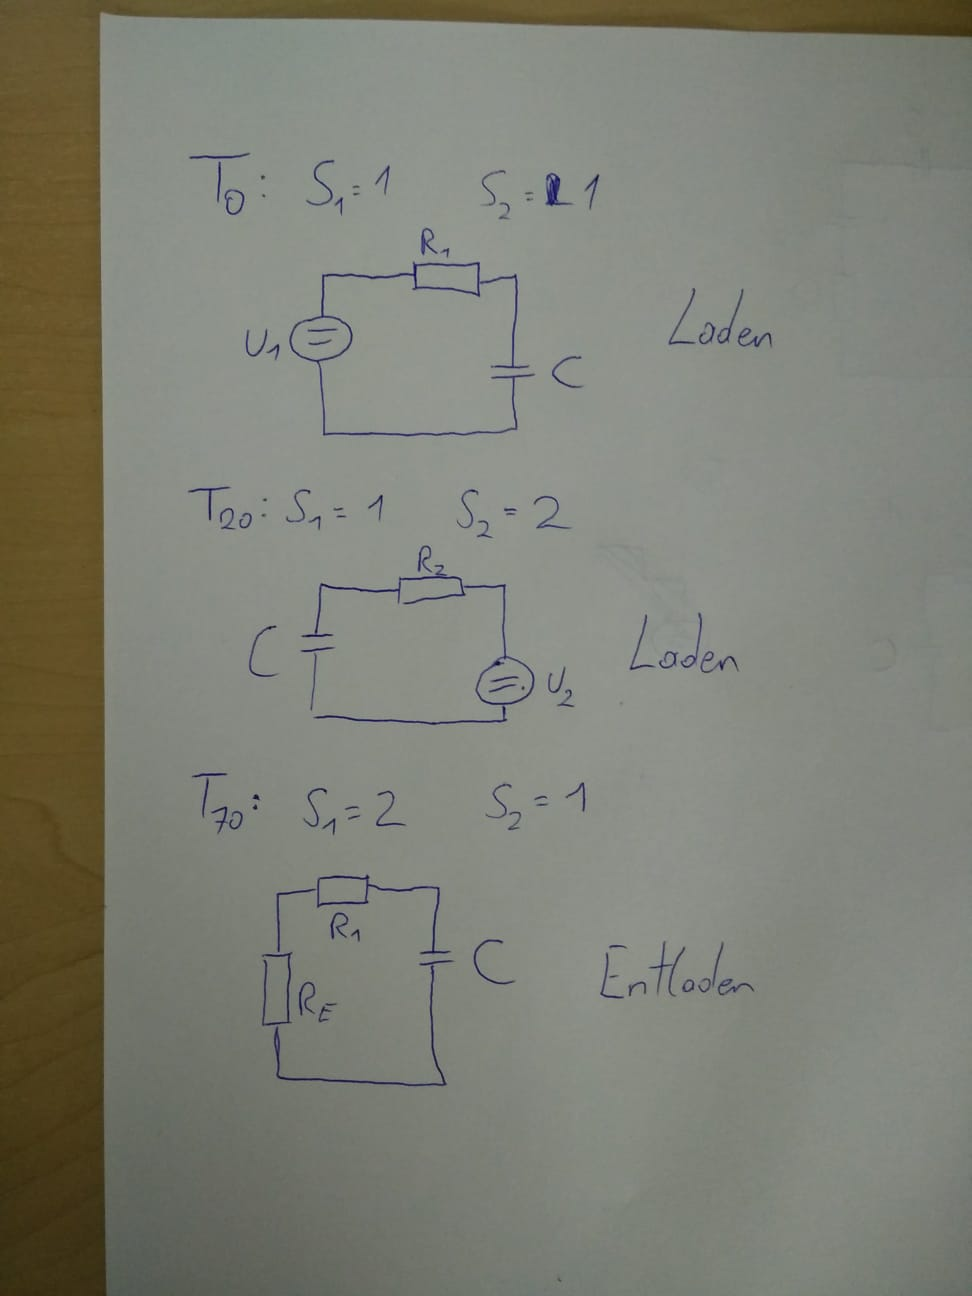 T0: S1=1 S2=1
R1
U1
C
Laden
T20: S1=1 S2=2
R2
C
U2
Laden
T70: S1=2 S2=1
R1
C
RE
Entladen